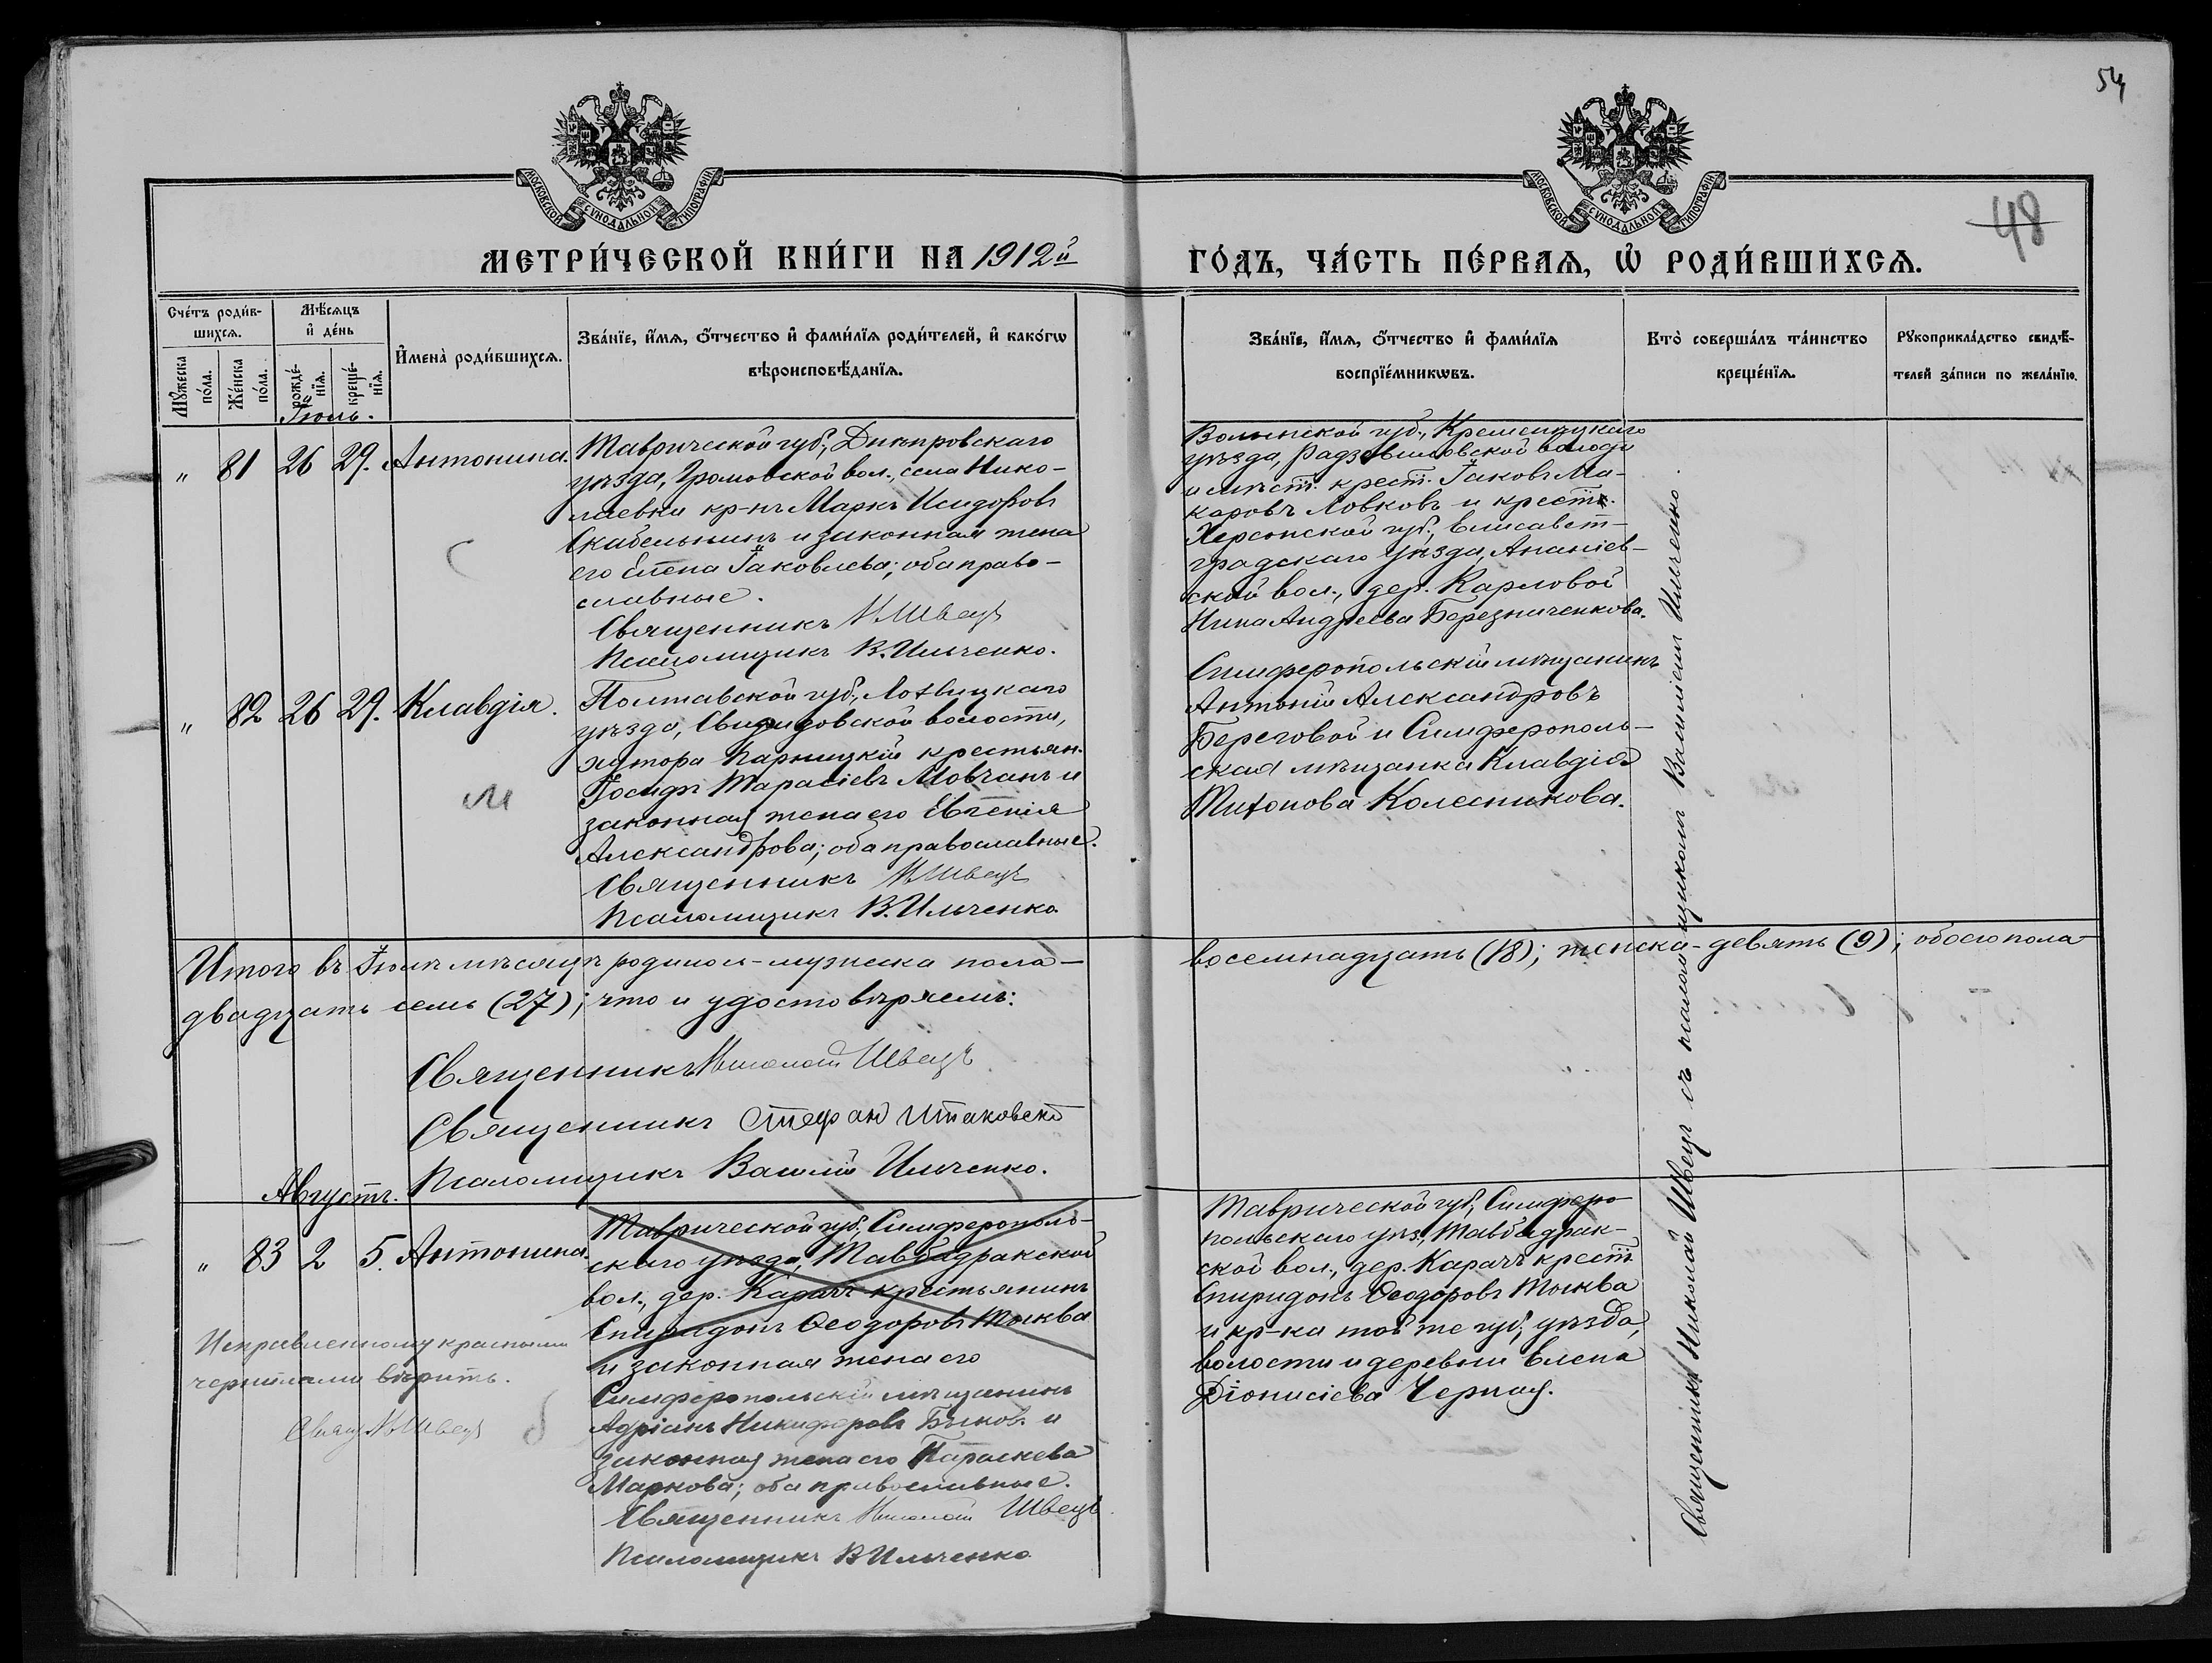 54
48
МОСКОВСКОЙ СѴНОДАЛЬНОЙ ТИПОГРАФІИ
МОСКОВСКОЙ СѴНОДАЛЬНОЙ ТИПОГРАФІИ
МЕТРИ́ЧЕСКОЙ КНИ́ГИ НА 1912й
ГО́ДЪ, ЧА́СТЬ ПЕ́РВАѦ, Ѡ҆ РОДИ́ВШИХСѦ.
Сче́тъ роди́в-
шихсѧ.
Мꙋ́жеска
по́ла.
Же́нска
по́ла.
Мѣ́сѧцъ
и҆ де́нь
рожде́-
нїѧ.
креще́-
нїѧ.
И҆мена̀ роди́вшихсѧ.
Зва́нїе, и҆́мѧ, ѻ҆́тчество и҆ фами́лїѧ роди́телей, и҆ како́гѡ
вѣроисповѣ́данїѧ.
Зва́нїе, и҆́мѧ, ѻ҆́тчество и҆ фами́лїѧ
воспрїе́мникѡвъ.
Кто̀ соверша́лъ та́инство
креще́нїѧ.
Рꙋкоприкла́дство свидѣ́-
телей за́писи по жела́нїю.
Іюль.
" 81 26 29. Антонина.
Таврической губ., Днѣпровскаго
уѣзда, Громовской вол., села Нико-
лаевки кр-нъ Маркъ Исидоровъ
Скабельнинъ и законная жена
его Елена Іаковлева; оба право-
славные.
Священникъ Н Швецъ
Псаломщикъ В. Ильченко.
Волынской губ., Кременецкаго
уѣзда, Радзивиловской волости
и мѣст. крест. Іаковъ Ма-
каровъ Ловковъ и крест.
Херсонской губ., Елисавет-
градскаго уѣзда, Ананіев-
ской вол., дер. Карловой
Нина Андреева Березниченкова.
С
" 82 26 29. Клавдія.
Полтавской губ., Лохвицкаго
уѣзда, Свиридовской волости,
хутора Парницкій крестьян.
Іосифъ Тарасіевъ Мовчанъ и
законная жена его Евгенія
Александрова; оба православные.
Священникъ Н Швецъ
Псаломщикъ В. Ильченко
Симферопольскій мѣщанинъ
Антоній Александровъ
Береговой и Симферополь-
ская мѣщанка Клавдія
Тихонова Колесникова.
М
Итого въ Іюлѣ мѣсяцѣ родилось - мужеска пола -
восемнадцать (18); женска - девять (9); обоего пола -
двадцать семь (27); что и удостовѣряемъ:
Священникъ Николай Швецъ
Священникъ Стефан
Псаломщикъ Василій Ильченко.
Августъ.
" 83 2 5. Антонина.
Таврической губ., Симферополь-
скаго уѣзда, Тавбадракской
вол., дер. Карачъ крестьянинъ
Спиридонъ Ѳеодоровъ Москва
и законная жена его
Симферопольскій мѣщанинъ
Адріанъ Никифоровъ Быковъ и
законная жена его Параскева
Маркова; оба православные.
Священникъ Николай Швецъ
Псаломщикъ В Ильченко
Исправленному красными
чернилами вѣрить.
Свящ. Н Швецъ
Таврической губ., Симферо-
польскаго уѣз., Тавбадрак-
ской вол., дер. Карачъ крест.
Спиридонъ Ѳеодоровъ Москва
и кр-ка той же губ., уѣзда,
волости и деревни Елена
Діонисіева Черная.
Священникъ Николай Швецъ съ псаломщикомъ Василіемъ Ильченко.